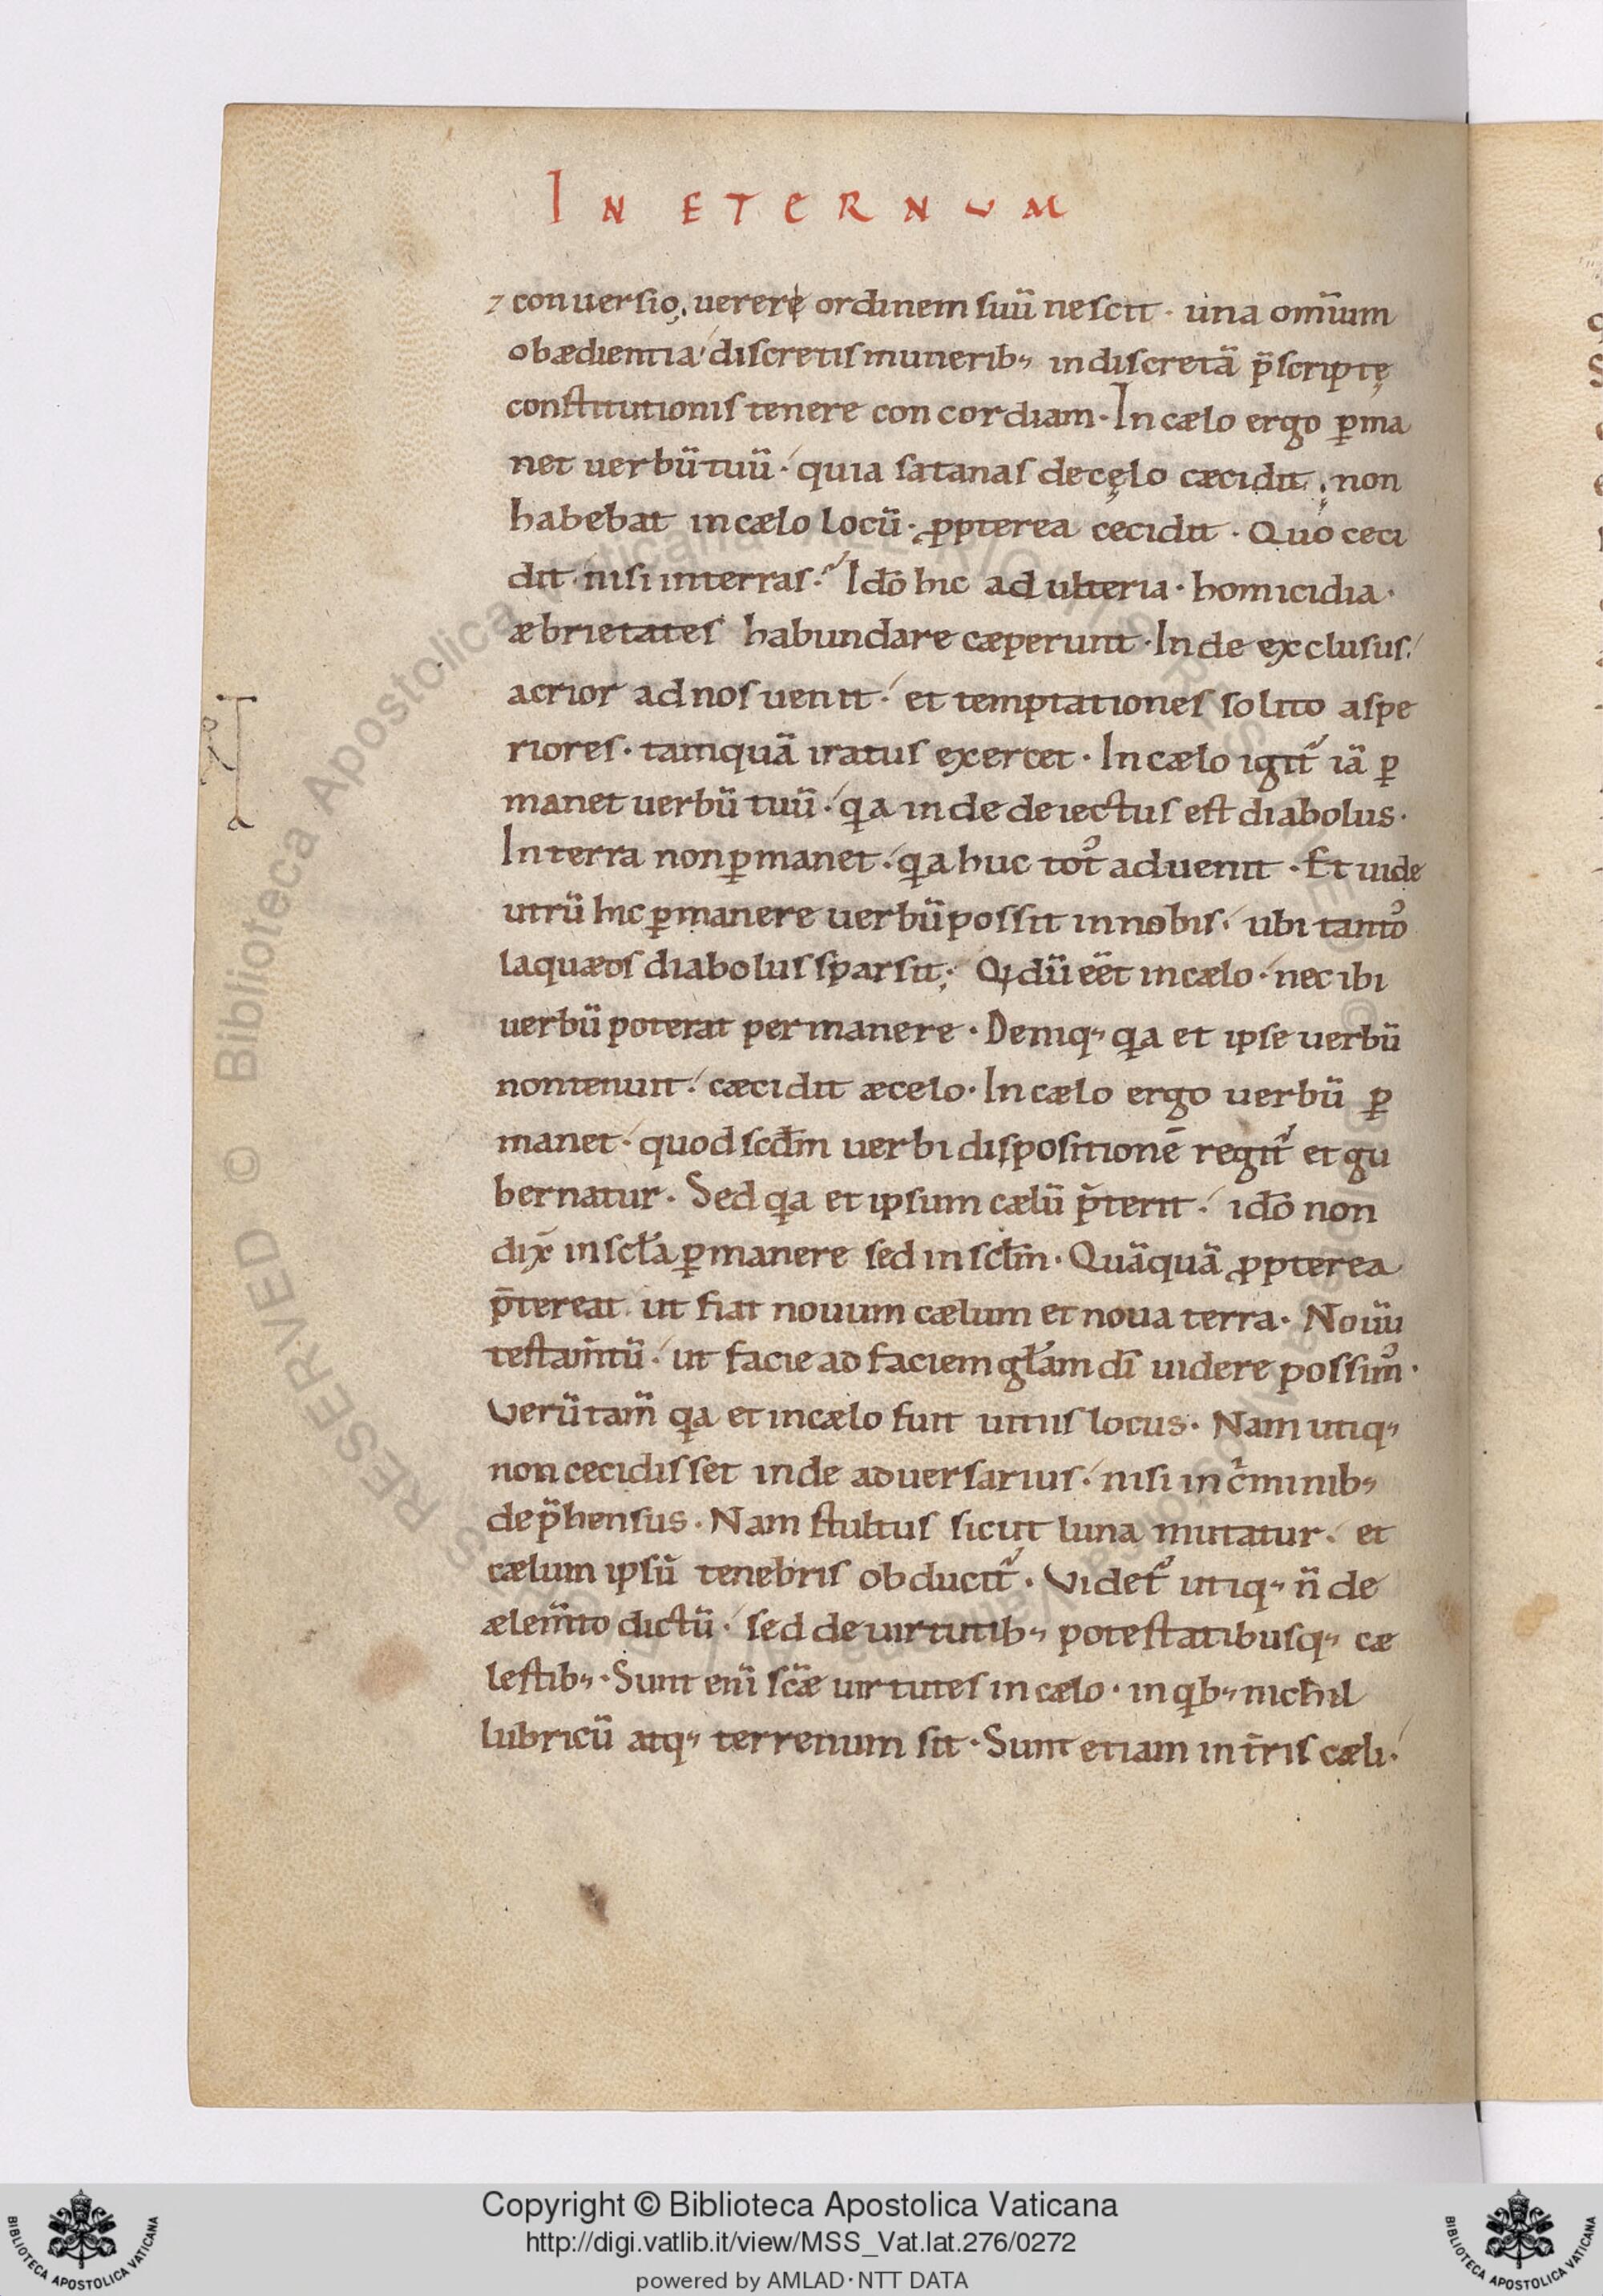 IN ETERNUM
⁊ conuersio, uerere ordinem suū nescit · una om̄ium
obædientia discretis munerib; indiscretā p̄scriptę
constitutionis tenere concordiam · In cælo ergo ꝑma
net uerbū tuū · quia satanas de cęlo cæcidit, non
habebat in cælo locū · ꝓpterea cecidit · Quo ceci
dit nisi in terras · Idō hic adulteria · homicidia ·
æbrietates habundare cæperunt · Inde exclusus
acrior ad nos uenit · et temptationes solito aspe
riores · tamquā iratus exercet · In cælo igit᷑ iā ꝑ
manet uerbū tuū · qa inde deiectus est diabolus ·
In terra non ꝑmanet · qa huc totꝰ aduenit · Et uide
utrū hic ꝑmanere uerbū possit in nobis · ubi tantoꝰ
laquæos diabolus sparsit; Qi dū eēt in cælo · nec ibi
uerbū poterat permanere · Deniq; qa et ipse uerbū
non tenuit · cæcidit æ celo · In cælo ergo uerbū ꝑ
manet · quod scdm̄ uerbi dispositionē regit᷑ et gu
bernatur · Sed qa et ipsum cælū p̄terit · idō non
dix̄ in scl̄a ꝑmanere sed in scl̄m · Quāquā ꝓpterea
p̄tereat ut fiat nouum cælum et noua terra · Nouū
testam̄tū · ut facie ad faciem gl̄am dī uidere possimꝰ ·
Verūtam̄ qa et in cælo fuit uitiis locus · Nam utiq;
non cecidisset inde aduersarius · nisi in c̄minib;
dep̄hensus · Nam stultus sicut luna mutatur · et
cælum ipsū tenebris obducit᷑ · Videt᷑ utiq; n̄ de
ælem̄to dictū · sed de uirtutib; potestatibusq; cæ
lestib; · Sunt eni̅ sc̄æ uirtutes in cælo · in qb; nichil
lubricū atq; terrenum sit · Sunt etiam in t̄ris cæli ·
© Biblioteca Apostolica Vaticana
Copyright © Biblioteca Apostolica Vaticana
http://digi.vatlib.it/view/MSS_Vat.lat.276/0272
powered by AMLAD·NTT DATA
BIBLIOTECA APOSTOLICA VATICANA
BIBLIOTECA APOSTOLICA VATICANA